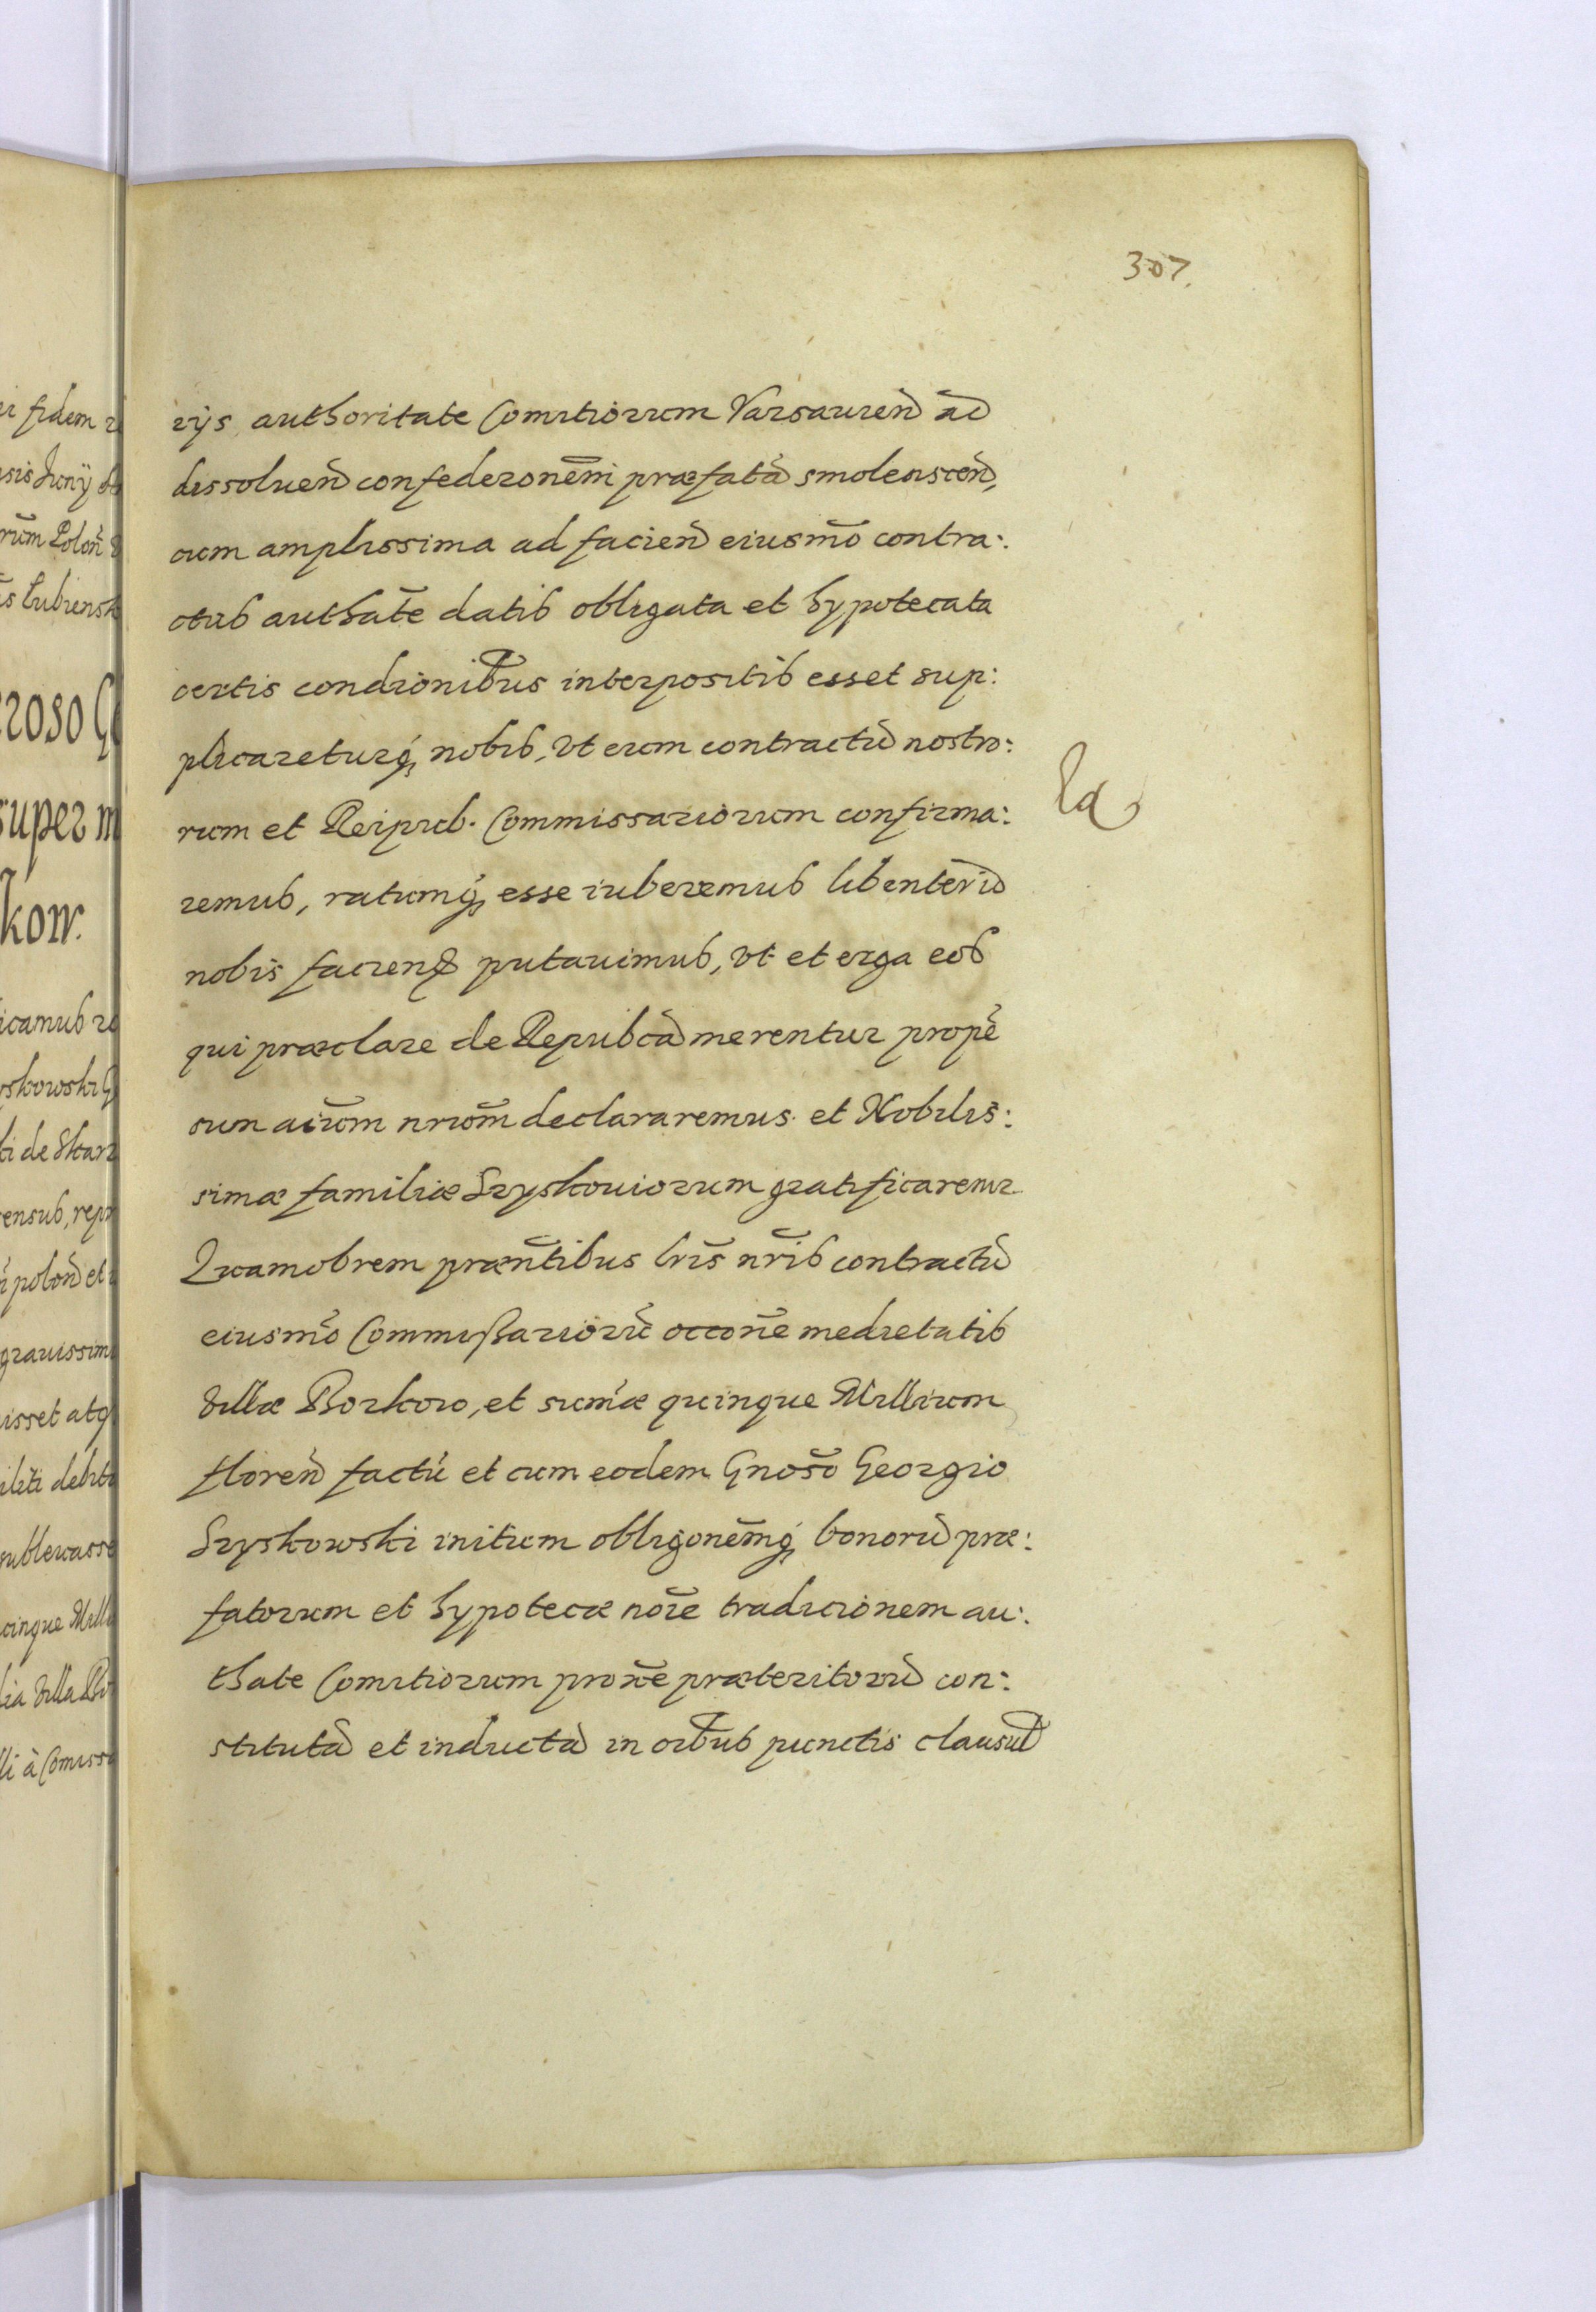 307.
rijs authoritate Comitiorum Varsauień ad
dissolueń confederonēm præfatã smolensceń,
cum amplissima ad facień eiusmõ contra:
ctus authãte datis obligata et hypotecata
certis condicionibus interpositis esset sup:
plicareturq́, nobis, vt eum contractũ nostro:
rum et Reipub. Commissariorum confirma:
remus, ratumq́, esse iuberemus libenter id
nobis faciend putauimus, vt et erga eos
qui præclare de Repubcã merentur propẽ
sum aium nrum declararemus et Nobilis:
simæ familiæ Szyskouiorum gratificaremr
Quamobrem præntibus lris nris contractũ
eiusmõ Commissariorũ occone medietatis
villæ Borkow, et sumæ quinque Millium
floreń factũ et cum eodem Gnoso Georgio
Szyskowski initum obligonēmq́, bonorũ præ:
fatorum et hypotecæ noie tradicionem au:
thate Comitiorum proxe præteritorũ con:
stitutã et inductã in oibus punctis clausul
la
ei fidem
sis Junÿ
rum Poloń
roso G
super m
kow.
icamus
yskowski G
ki de Skar
ensus, repr
poloń et
grauissim
isset atq
militi debit
subleuasse
uinque Mill
villa Bo
li à Comiss